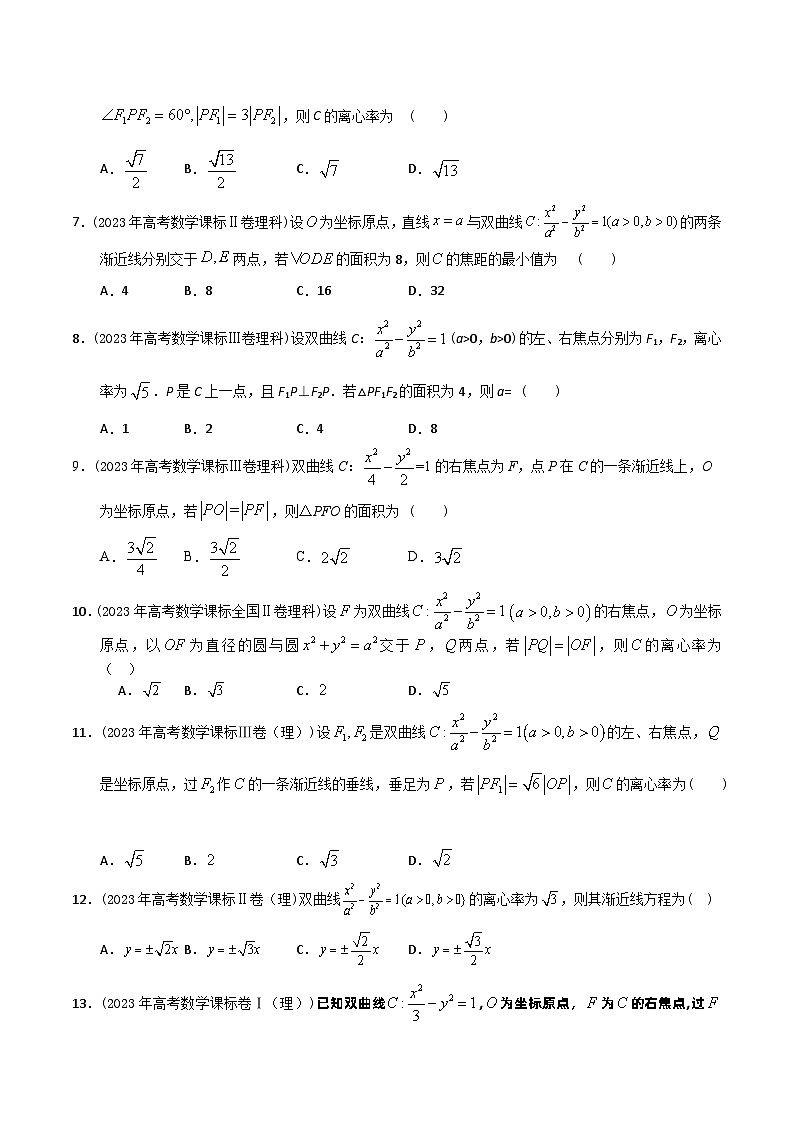 ∠F₁PF₂ = 60°, |PF₁| = 3|PF₂|,则C的离心率为 ( )
A. √7/2 B. √13/2 C. √7 D. √13
7.(2023年高考数学课标Ⅱ卷理科)设O为坐标原点,直线x = a与双曲线C : x²/a² − y²/b² = 1(a > 0, b > 0)的两条
渐近线分别交于D, E两点,若VODE的面积为8,则C的焦距的最小值为 ( )
A.4 B.8 C.16 D.32
8.(2023年高考数学课标Ⅲ卷理科)设双曲线C: x²/a² − y²/b² = 1 (a>0,b>0)的左、右焦点分别为F₁,F₂,离心
率为√5.P是C上一点,且F₁P⊥F₂P.若△PF₁F₂的面积为4,则a= ( )
A.1 B.2 C.4 D.8
9.(2023年高考数学课标Ⅲ卷理科)双曲线C: x²/4 − y²/2 =1的右焦点为F,点P在C的一条渐近线上,O
为坐标原点,若|PO| = |PF|,则△PFO的面积为 ( )
A. 3√2/4 B. 3√2/2 C. 2√2 D. 3√2
10.(2023年高考数学课标全国Ⅱ卷理科)设F为双曲线C : x²/a² − y²/b² = 1 (a > 0, b > 0)的右焦点,O为坐标
原点,以OF为直径的圆与圆x² + y² = a²交于P,Q两点,若|PQ| = |OF|,则C的离心率为
( )
A. √2 B. √3 C. 2 D. √5
11.(2023年高考数学课标Ⅲ卷(理))设F₁, F₂是双曲线C : x²/a² − y²/b² = 1(a > 0, b > 0)的左、右焦点,Q
是坐标原点,过F₂作C的一条渐近线的垂线,垂足为P,若|PF₁| = √6|OP|,则C的离心率为( )
A. √5 B. 2 C. √3 D. √2
12.(2023年高考数学课标Ⅱ卷(理)双曲线x²/a² − y²/b² = 1(a > 0, b > 0)的离心率为√3,则其渐近线方程为( )
A. y = ±√2x B. y = ±√3x C. y = ±√2/2 x D. y = ±√3/2 x
13.(2023年高考数学课标卷Ⅰ(理))已知双曲线C : x²/3 − y² = 1,O为坐标原点, F为C的右焦点,过F